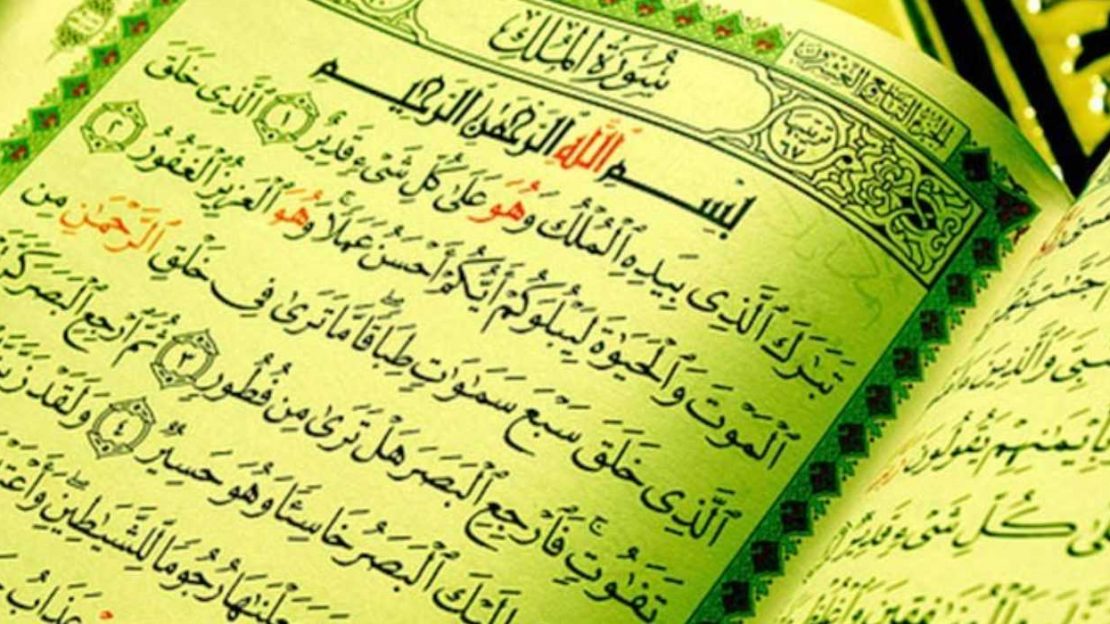 سُورَةُ المُلْكِ
الجزء التاسع والعشرون
ترتيبها ٦٧
بِسْمِ ٱللَّهِ ٱلرَّحْمَٰنِ ٱلرَّحِيمِ
تَبَٰرَكَ ٱلَّذِى بِيَدِهِ ٱلْمُلْكُ وَهُوَ عَلَىٰ كُلِّ شَىْءٍ قَدِيرٌ ١ ٱلَّذِى خَلَقَ
ٱلْمَوْتَ وَٱلْحَيَوٰةَ لِيَبْلُوَكُمْ أَيُّكُمْ أَحْسَنُ عَمَلًا ۚ وَهُوَ ٱلْعَزِيزُ ٱلْغَفُورُ ٢
ٱلَّذِى خَلَقَ سَبْعَ سَمَٰوَٰتٍ طِبَاقًا ۖ مَّا تَرَىٰ فِى خَلْقِ ٱلرَّحْمَٰنِ مِن
تَفَٰوُتٍ ۖ فَٱرْجِعِ ٱلْبَصَرَ هَلْ تَرَىٰ مِن فُطُورٍ ٣ ثُمَّ ٱرْجِعِ ٱلْبَصَرَ
إِلَيْكَ ٱلْبَصَرُ خَاسِئًا وَهُوَ حَسِيرٌ ٤ وَلَقَدْ
رُجُومًا لِّلشَّيَٰطِينِ ۖ
عَذَابَ
وَٱلَّذِينَ
يَقُولُونَ
كُلِّ شَىْءٍ قَدِيرٌ